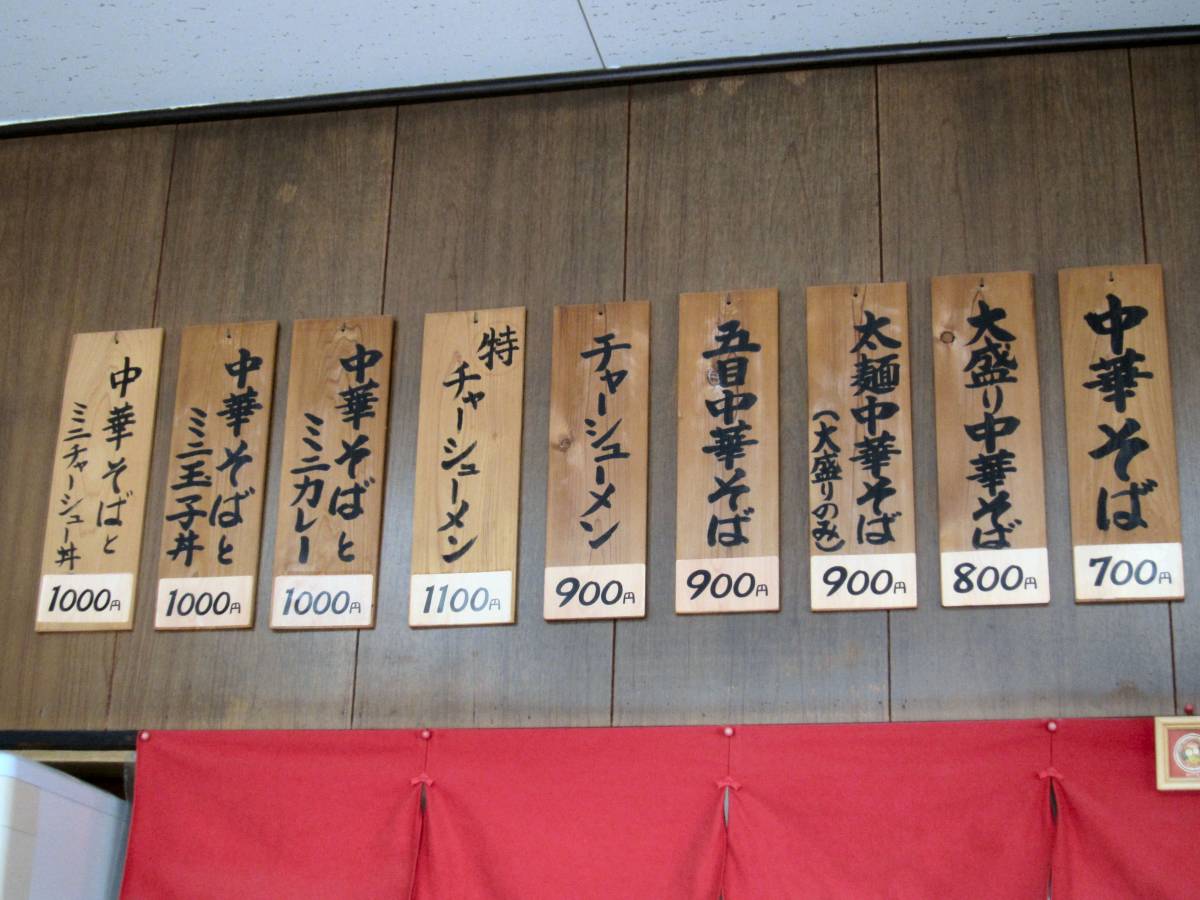 中華そば
700円
大盛り中華そば
800円
太麺中華そば
(大盛りのみ)
900円
五目中華そば
900円
チャーシューメン
900円
特
チャーシューメン
1100円
中華そばと
ミニカレー
1000円
中華そばと
ミニ玉子丼
1000円
中華そばと
ミニチャーシュー丼
1000円